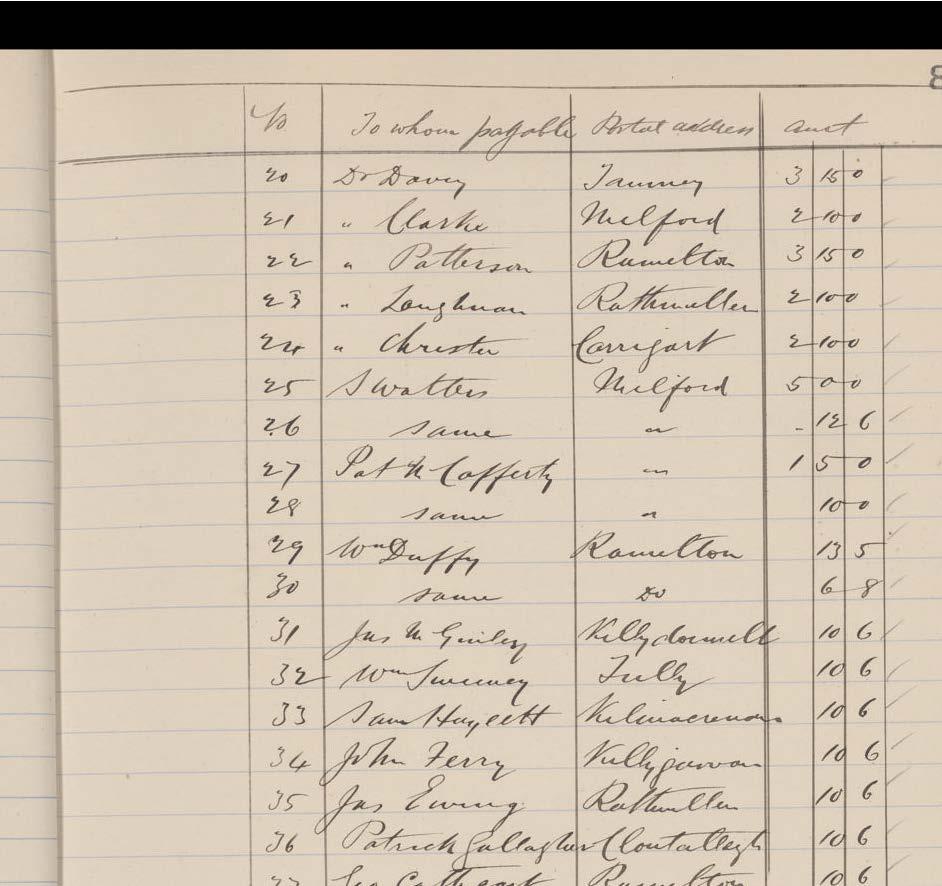 8
No To whom payable Postal address amt
20 Dr Davey Tamney 3 15 0
21 " Clarke Milford 2 10 0
22 " Patterson Ramelton 3 15 0
23 " Loughnan Rathmullen 2 10 0
24 " Christer Carrigart 2 10 0
25 S Watters Milford 5 0 0
26 same " - 12 6
27 Pat McCafferty " 1 5 0
28 same " 10 0
29 Wm Duffy Ramelton 13 5
30 same Do 6 8
31 Jas McGinley Killydonnell 10 6
32 Wm Sweeney Tully 10 6
33 Sam Kilmacrenan 10 6
34 John Ferry Killygarvan 10 6
35 Jas Ewing Rathmullen 10 6
36 Patrick Gallagher Clontallagh 10 6
37 Geo Cathcart Ramelton 10 6